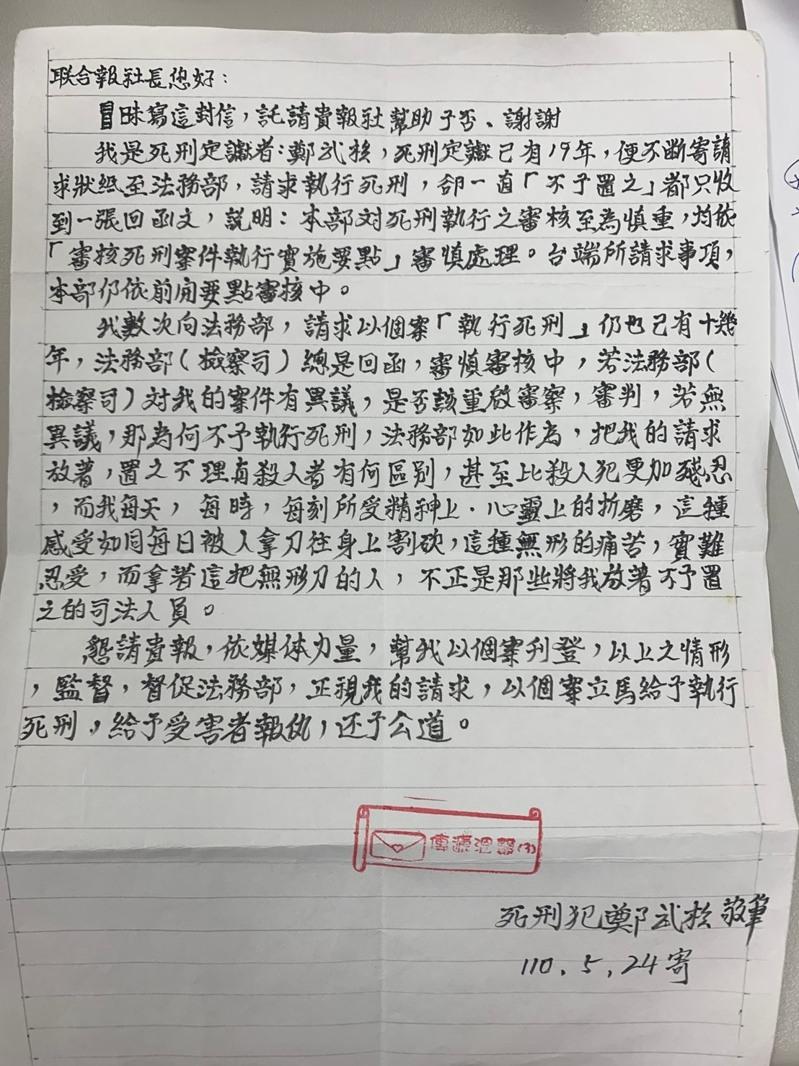 联合報社長您好：
冒昧寫這封信，託請貴報社幫助予否、謝謝
我是死刑定讞者：鄭武松，死刑定讞已有19年，便不斷寄請
求狀紙至法務部，請求執行死刑，卻一直「不予置之」都只收
到一張回函文，説明：本部对死刑執行之審核至為慎重，均依
「審核死刑案件執行實施要點」審慎處理。台端所請求事項，
本部仍依前開要點審核中。
我數次向法務部，請求以個案「執行死刑」仍也已有十幾
年，法務部（檢察司）總是回函，審慎審核中，若法務部（
檢察司）対我的案件有異議，是否該重啟審案，審判，若無
異議，那為何不予執行死刑，法務部如此作為，把我的請求
放著，置之不理與殺人者有何區别，甚至比殺人犯更加殘忍
，而我每天，每時，每刻所受精神上．心靈上的折磨，這種
感受如同每日被人拿刀往身上割砍，這種無形的痛苦，實難
忍受，而拿著這把無形刀的人，不正是那些將我放著不予置
之的司法人員。
懇請貴報，依媒体力量，幫我以個案刋登，以上之情形
，監督，督促法務部，正視我的請求，以個案立馬給予執行
死刑，給予受害者報仇，还予公道。
傳遞溫馨(3)
死刑犯鄭武松敬筆
110.5.24寄